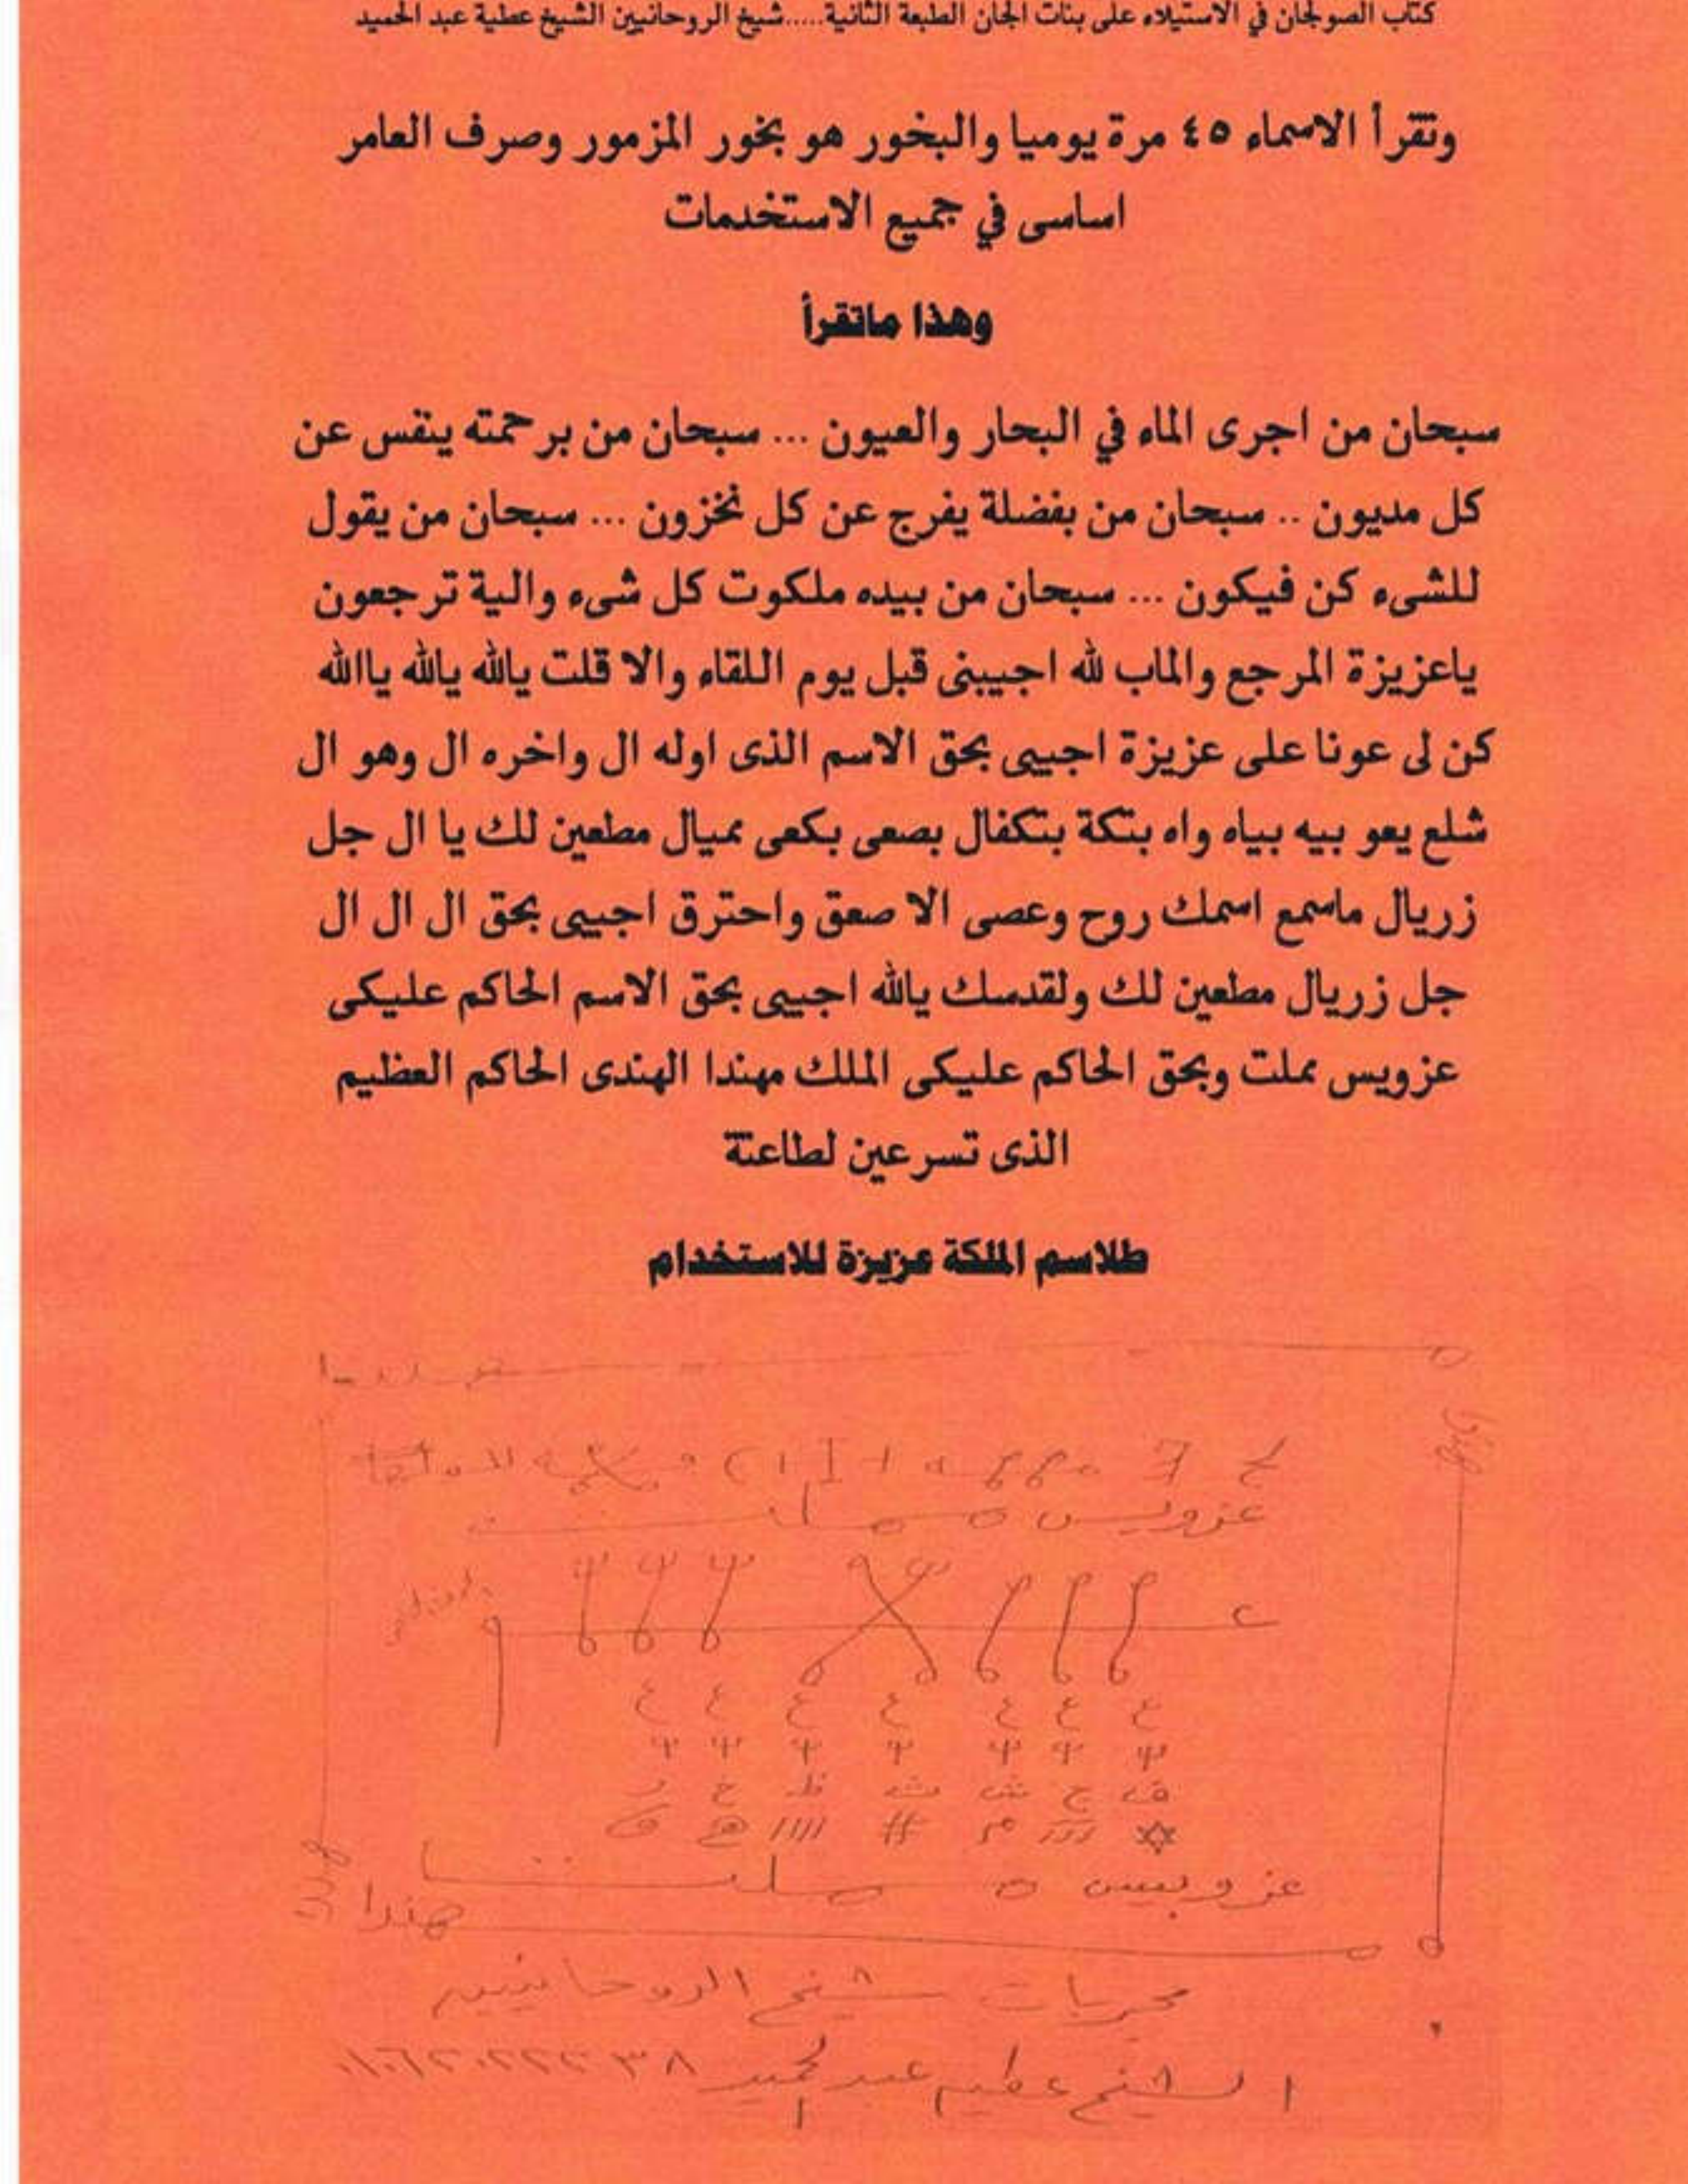 كتاب الصولجان في الاستيلاء على بنات الجان الطبعة الثانية.....شيخ الروحانيين الشيخ عطية عبد الحميد
وتقرأ الاسماء ٤٥ مرة يوميا والبخور هو بخور المزمور وصرف العامر
اساسى في جميع الاستخدمات
وهذا ماتقرأ
سبحان من اجرى الماء في البحار والعيون ... سبحان من برحمته ينفس عن
كل مديون .. سبحان من بفضلة يفرج عن كل نخزون ... سبحان من يقول
للشىء كن فيكون ... سبحان من بيده ملكوت كل شىء والية ترجعون
ياعزيزة المرجع والماب لله اجيبنى قبل يوم اللقاء والا قلت يالله يالله ياالله
كن لى عونا على عزيزة اجيبى بحق الاسم الذى اوله ال واخره ال وهو ال
شلع يعو بيه بياه واه بتكة بتكفال بصعى بكعى مميال مطعين لك يا ال جل
زريال ماسمع اسمك روح وعصى الا صعق واحترق اجيبى بحق ال ال ال
جل زريال مطعين لك ولقدسك يالله اجيبى بحق الاسم الحاكم عليكى
عزويس مملت وبحق الحاكم عليكى الملك مهندا الهندى الحاكم العظيم
الذى تسرعين لطاعتة
طلاسم الملكة عزيزة للاستخدام
عزويس
ع ع ع ع ع ع ع
ق ج ش ث ظ خ ز
مجربات شيخ الروحانيين
الشيخ عطيه عبد الحميد